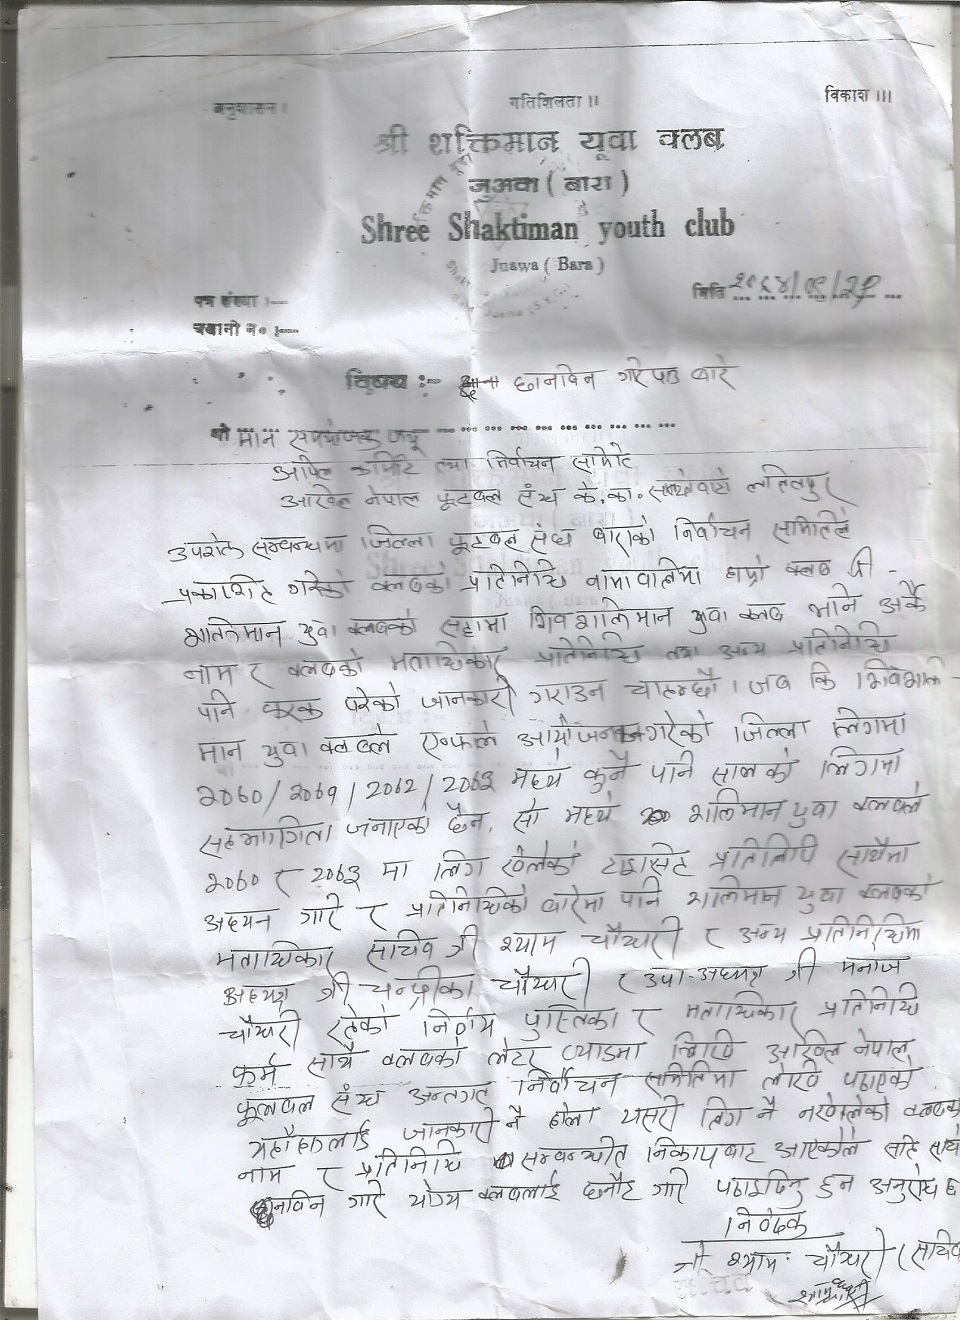 अनुशासन । गतिशिलता ।। विकाश ।।।
श्री शक्तिमान यूवा क्लब
जुअवा ( बारा )
Shree Shaktiman youth club
Juawa ( Bara )
मिति २०६४/०९/२१
पत्र संख्या :—
चलानी नं० :—
विषय :- छानविन गरि पाउ बारे
श्री मान संयोजक ज्यू
अपिल कमिटि तथा निर्वाचन समिति
अखिल नेपाल फूटबल संघ के.का. सातदोबाटो ललितपुर
उपरोक्त सम्बन्धमा जिल्ला फूटबल संघ बाराको निर्वाचन समितिले
प्रकाशित गरेको क्लबको प्रतिनिधि नामावलिमा हाम्रो क्लब श्री -
शक्तिमान युवा क्लबको सट्टामा शिवशक्तिमान युवा क्लब भनि अर्कै
नाम र क्लबको मताधिकार प्रतिनिधि तथा अन्य प्रतिनिधि
पनि फरक परेको जानकारी गराउन चाहन्छौ । जब कि शिवशक्ति -
मान युवा क्लबले एन्फाले आयोजना गरेको जिल्ला लिगमा
२०६०/२०६१/२०६२/२०६३ मध्ये कुनै पनि सालको लिगमा
सहभागिता जनाएको छैन, सो मध्ये शक्तिमान युवा क्लबले
२०६० र २०६३ मा लिग खेलेको टाइसिट प्रतिलिपि साथैमा
अध्यन गरि र प्रतिनिधिको बारेमा पनि शक्तिमान युवा क्लबको
मताधिकार सचिव श्री श्याम चौधरी र अन्य प्रतिनिधिमा
अध्यक्ष श्री चन्द्रीका चौधरी र उपा-अध्यक्ष श्री मनोज
चौधरी रहेको निर्णय पुस्तिका र मताधिकार प्रतिनिधि
फर्म साथै क्लबको लेटर प्याडमा लिखि अखिल नेपाल
फूलबल संघ अन्तगत निर्वाचन समितिमा लेखि पठाएको
यहाँहरुलाई जानकारी नै होला यसरी लिग नै नखेलेको क्लबको
नाम र प्रतिनिधि सम्बन्धीत निकायबाट आएकोले सहि साथ
छानविन गरि योग्य क्लबलाई छनौट गरि पठाइदिनु हुन अनुरोध छ
निवेदक
श्री श्याम चौधरी (सचिव